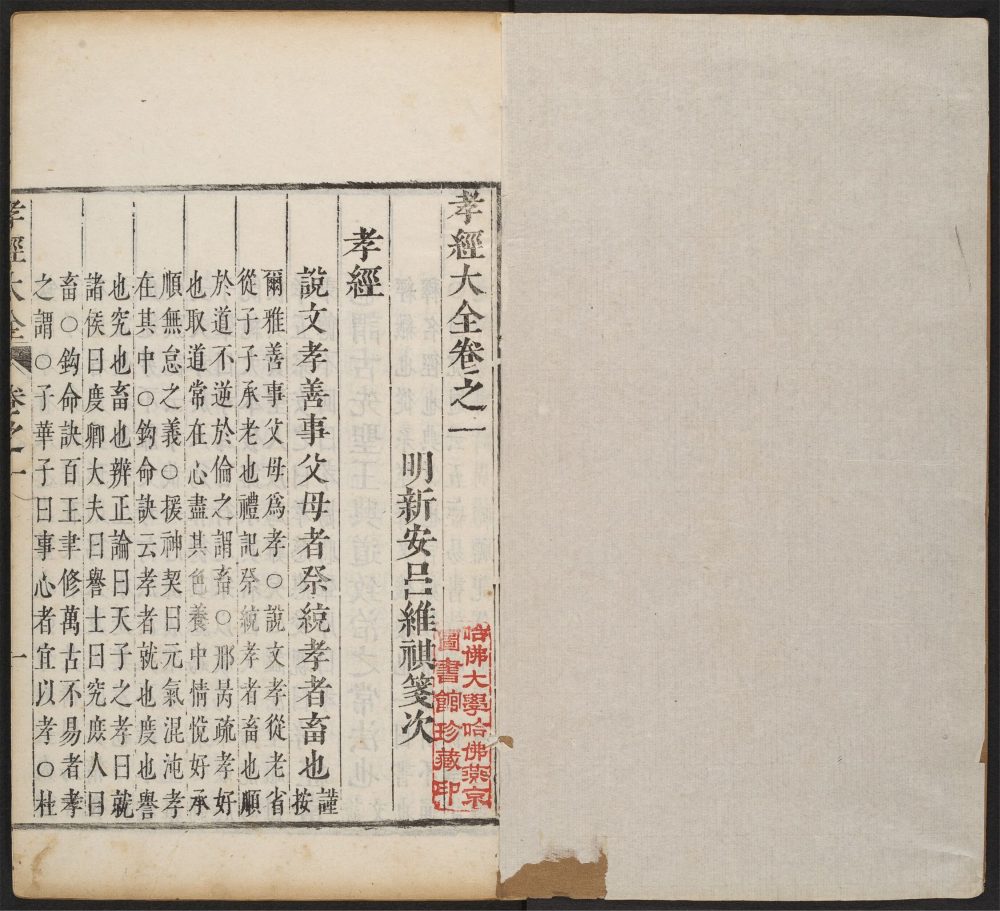 孝經大全卷之一
明新安呂維祺箋次
哈佛大學哈佛燕京
圖書館珍藏印
孝經
說文孝善事父母者祭統孝者畜也謹按
爾雅善事父母爲孝○說文孝從老省
從子子承老也禮記祭統孝者畜也順
於道不逆於倫之謂畜○邢昺疏孝好
也取道常在心盡其色養中情悅好承
順無怠之義○援神契曰元氣混沌孝
在其中○鉤命訣云孝者就也度也譽
也究也畜也辨正論曰天子之孝曰就
諸侯曰度卿大夫曰譽士曰究庶人曰
畜○鉤命訣百王聿修萬古不易者孝
之謂○子華子曰事心者宜以孝○杜
孝經大全 卷之一 一